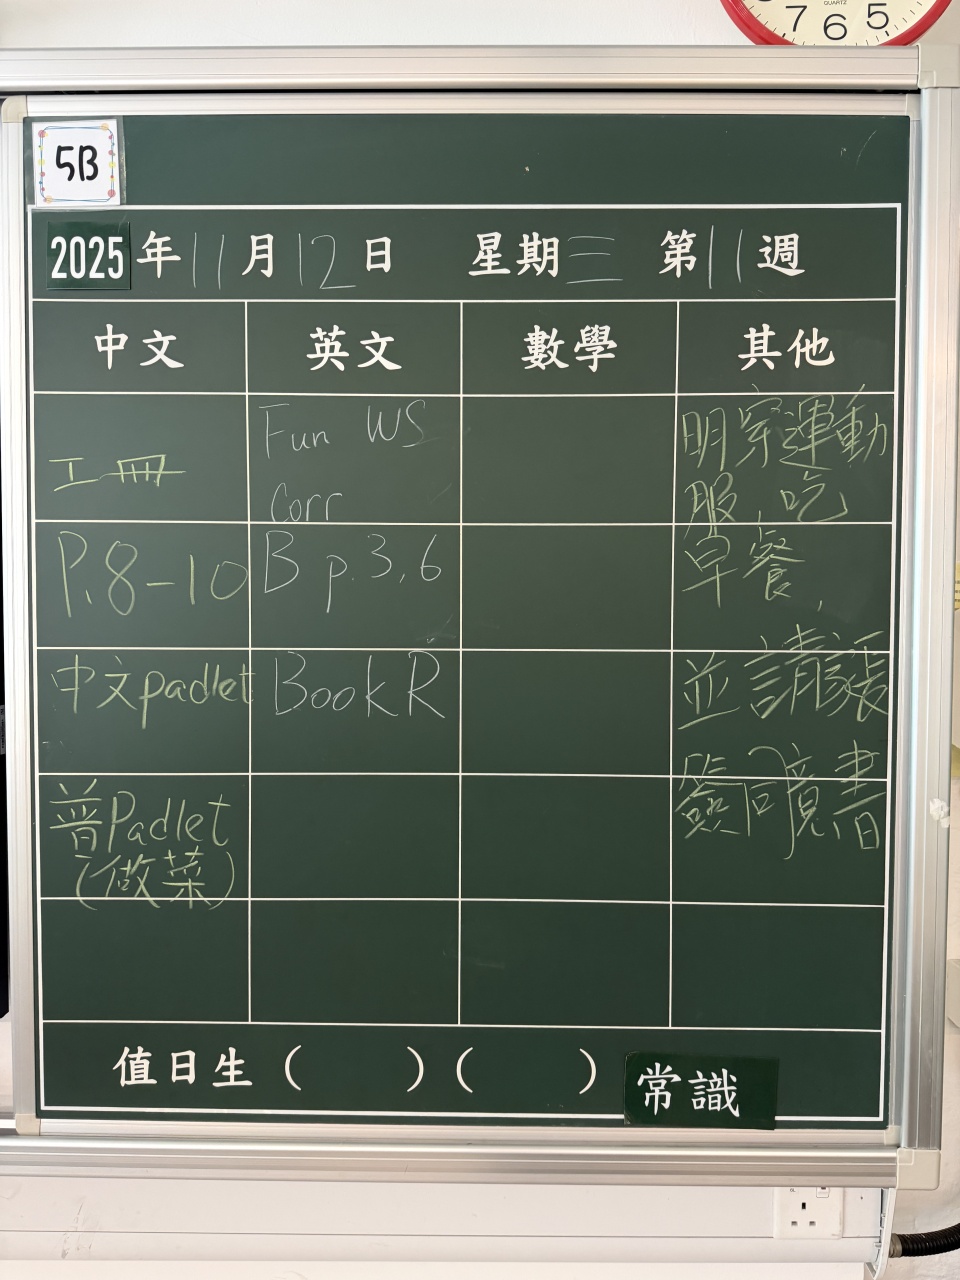 7 6 5
QUARTZ
5B
2025年11月12日 星期三 第11週
中文 英文 數學 其他
工冊
P.8-10
中文padlet
普Padlet
(做菜)
Fun WS
Corr
B p.3,6
Book R
明穿運動
服,吃
早餐,
並請
簽同意書
值日生( )( ) 常識